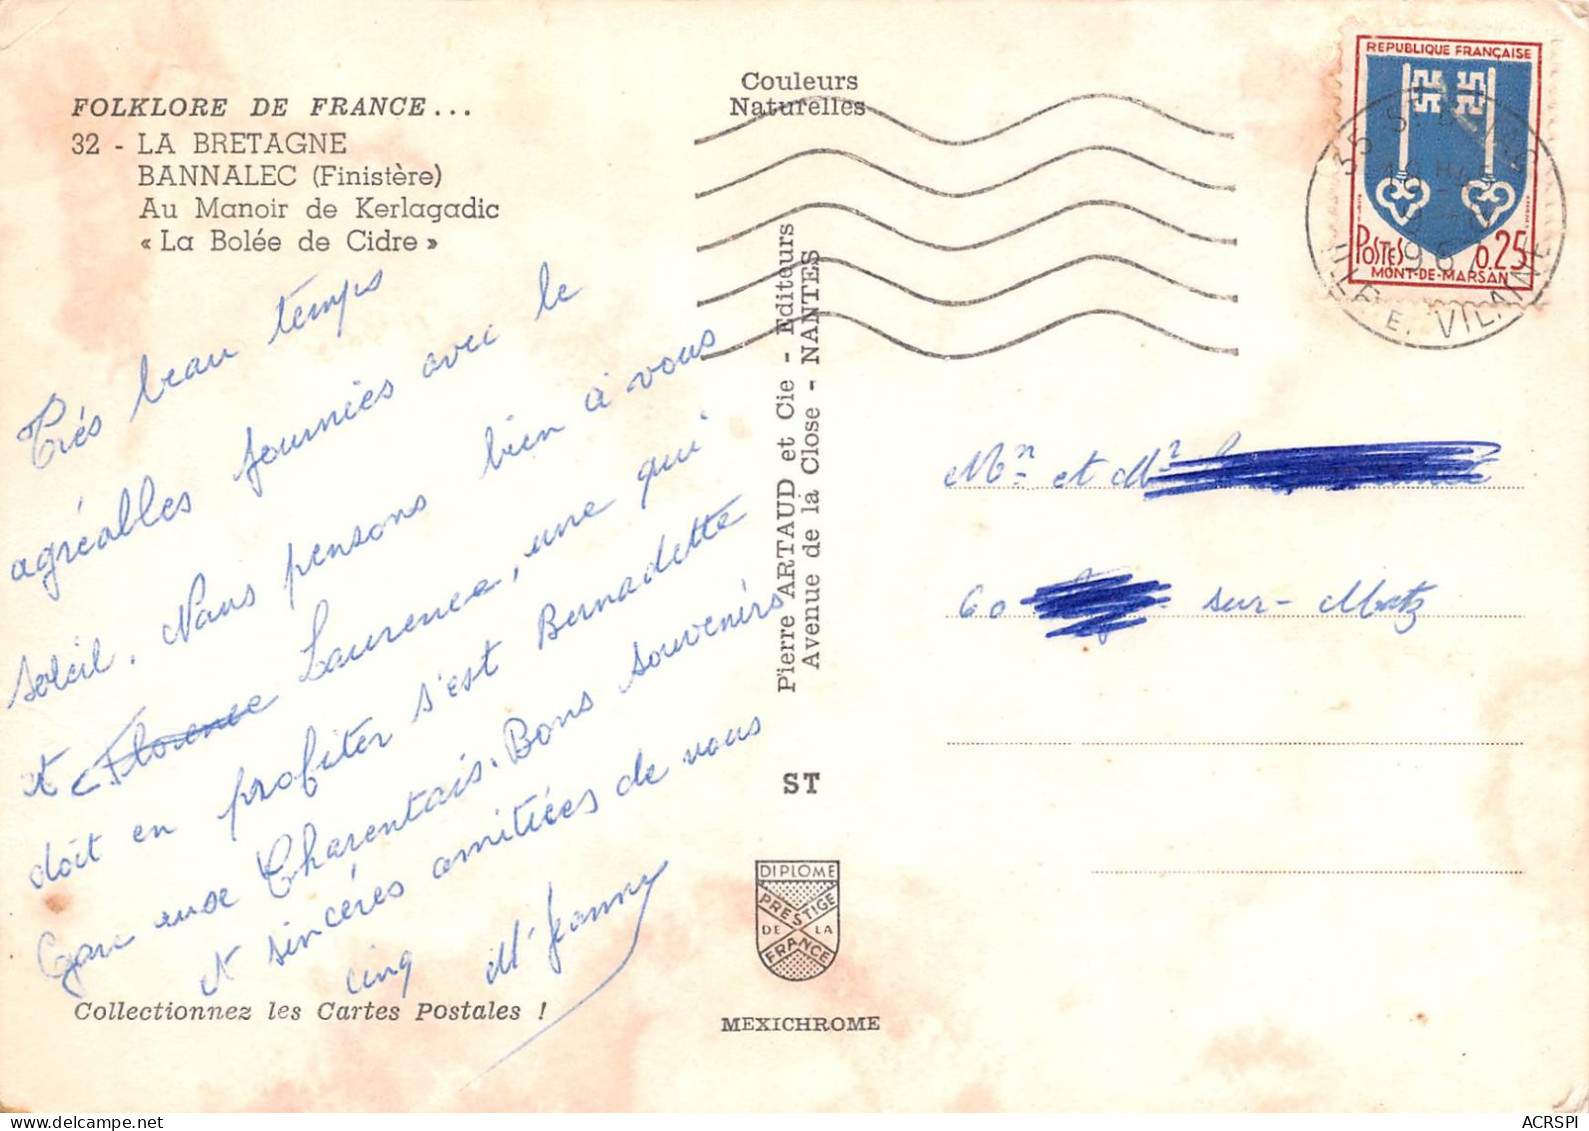 FOLKLORE DE FRANCE...
32 - LA BRETAGNE
BANNALEC (Finistère)
Au Manoir de Kerlagadic
« La Bolée de Cidre »
Couleurs
Naturelles
REPUBLIQUE FRANÇAISE
POSTES 0,25
MONT-DE-MARSAN
35 ST
1967
ILLE E. VILAINE
Très beau temps
agréables journées avec le
soleil. Nous pensons bien à vous
et Florence Laurence, une qui
doit en profiter s'est Bernadette
Gare aux Charentais. Bons souvenirs
et sincéres amitiées de vous
cinq M' Jeanne
Collectionnez les Cartes Postales !
Pierre ARTAUD et Cie - Editeurs
Avenue de la Close - NANTES
ST
DIPLOME
PRESTIGE
DE LA
FRANCE
MEXICHROME
et
60 sur - Matz
ACRSPI